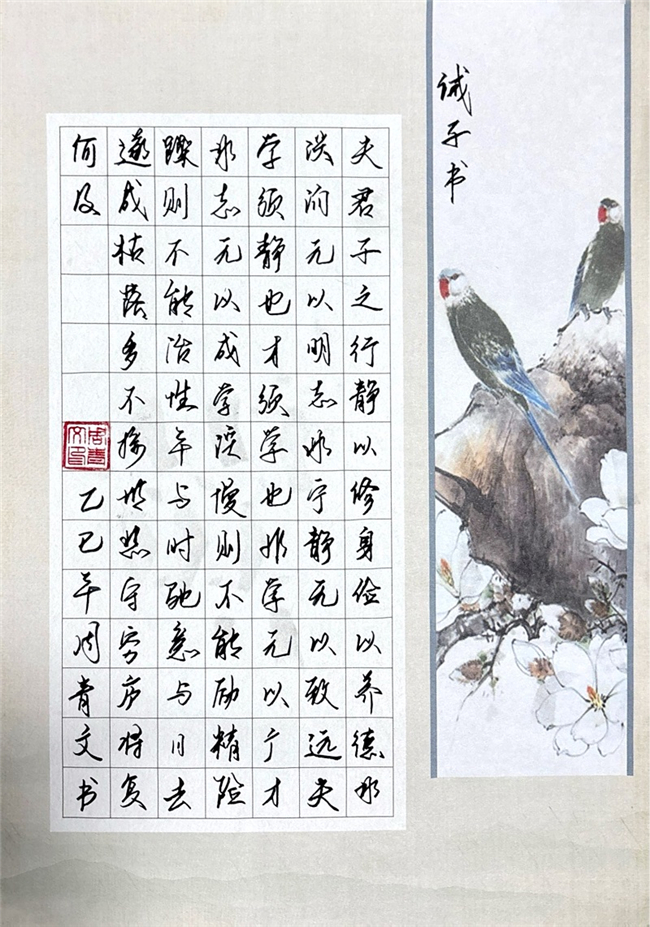 诫子书
夫君子之行静以修身俭以养德非
淡泊无以明志非宁静无以致远夫
学须静也才须学也非学无以广才
非志无以成学淫慢则不能励精险
躁则不能治性年与时驰意与日去
遂成枯落多不接世悲守穷庐将复
何及
乙巳年周青文书
周青文印